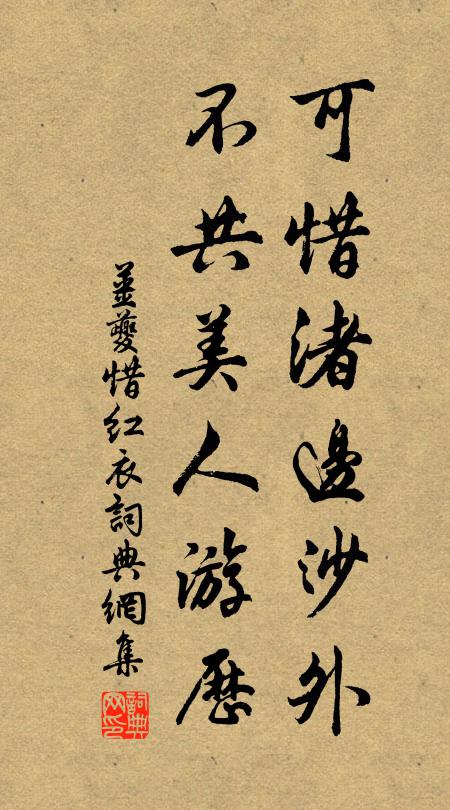 可惜渚邊沙外
不共美人游歷
姜夔惜紅衣詞典網集
詞典网印